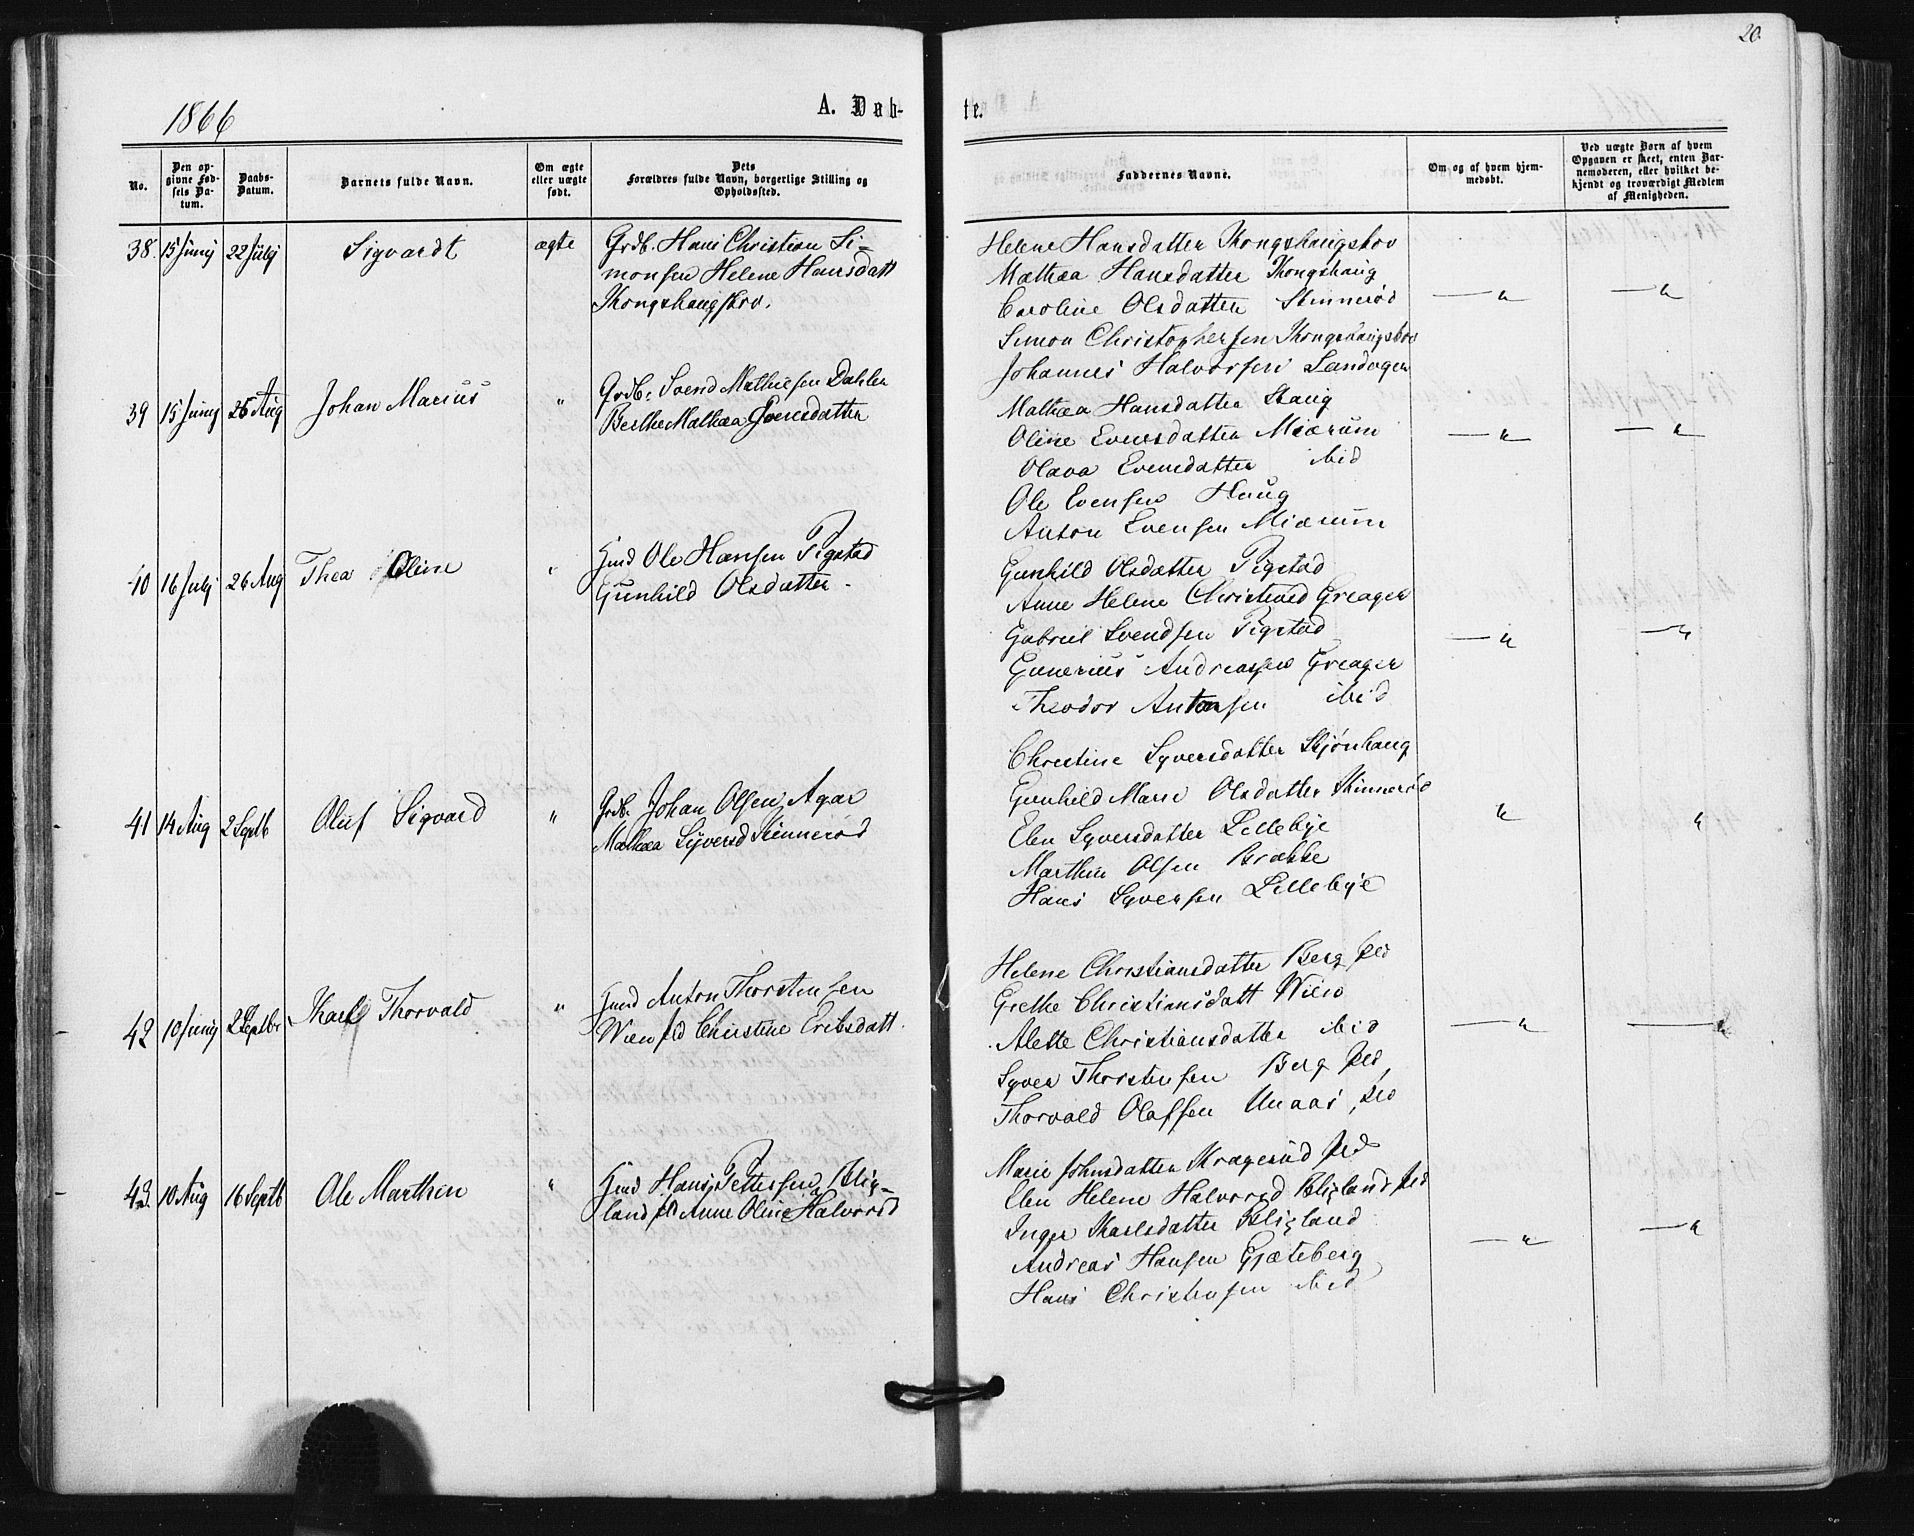 20.
1866
A. Døb-
te.
No.
Den op-
givne Fød-
sels Da-
tum.
Daabs-
Datum.
Barnets fulde Navn.
Om ægte
eller uægte
født.
Dets
Forældres fulde Navn, borgerlige Stilling og
Opholdssted.
Faddernes Navne.
Om og af hvem hjem-
medøbt.
Ved uægte Børn af hvem
Opgaven er skeet, enten Bar-
nemoderen, eller hvilket be-
kjendt og troværdigt Medlem
af Menigheden.
38. 15 Junij 22 Julij Sigvardt ægte Grdb. Hans Christian Si-
monsen Helene Hansdatt
Kongshaugskov.
Helene Hansdatter Kongshaugskov
Mathea Hansdatter Kongshaug
Caroline Olsdatter Skinnerød — " — "
Simon Christophersen Kongshaugskov
Johannes Halvorsen Sandager
39 15 Junij 25 Aug Johan Marius " Grdb. Svend Mathiesen Dahler
Berthe Mathea Evensdatter
Mathea Hansdatter Haug
Oline Evensdatter Miærum — " — "
Olava Evensdatter ibid
Ole Evensen Haug
Anton Evensen Miærum
40 16 Julij 26 Aug Thea Oline " Hmd Ole Hansen Pigstad
Gunhild Olsdatter.
Gunhild Olsdatter Pigstad
Anne Helene Christensd Greager
Gabriel Svendsen Pigstad — " — "
Gunerius Andreassen Greager
Theodor Antonsen ibid
41 14 Aug 2 Septb Oluf Sigvard " Grdb. Johan Olsen Agar
Mathea Syversd Skinnerød
Christine Syversdatter Skjønhaug
Gunhild Marie Olsdatter Skinnerød
Elen Syversdatter Lillebye " "
Marthin Olsen Brække
Hans Syversen Lillebye
42 10 Junij 2 Septbr Karl Thorvald " Hmd Anton Thorstensen
Wien Christine Eriksdatt.
Helene Christiansdatter Berg
Grethe Christiansdatt Wien
Alette Christiansdatter ibid — " — "
Syver Thorstensen Berg
Thorvald Olafsen
43. 10 Aug 16 Septb Ole Marthin " Hmd Hans Pettersen Blig-
land Anne Oline Halvorsd
Marie Johnsdatter Kragerud
Elen Helene Halvorsd Bligland
Inger Karlsdatter Bligland
Andreas Hansen Gjeteberg — " — "
Hans Christensen ibid